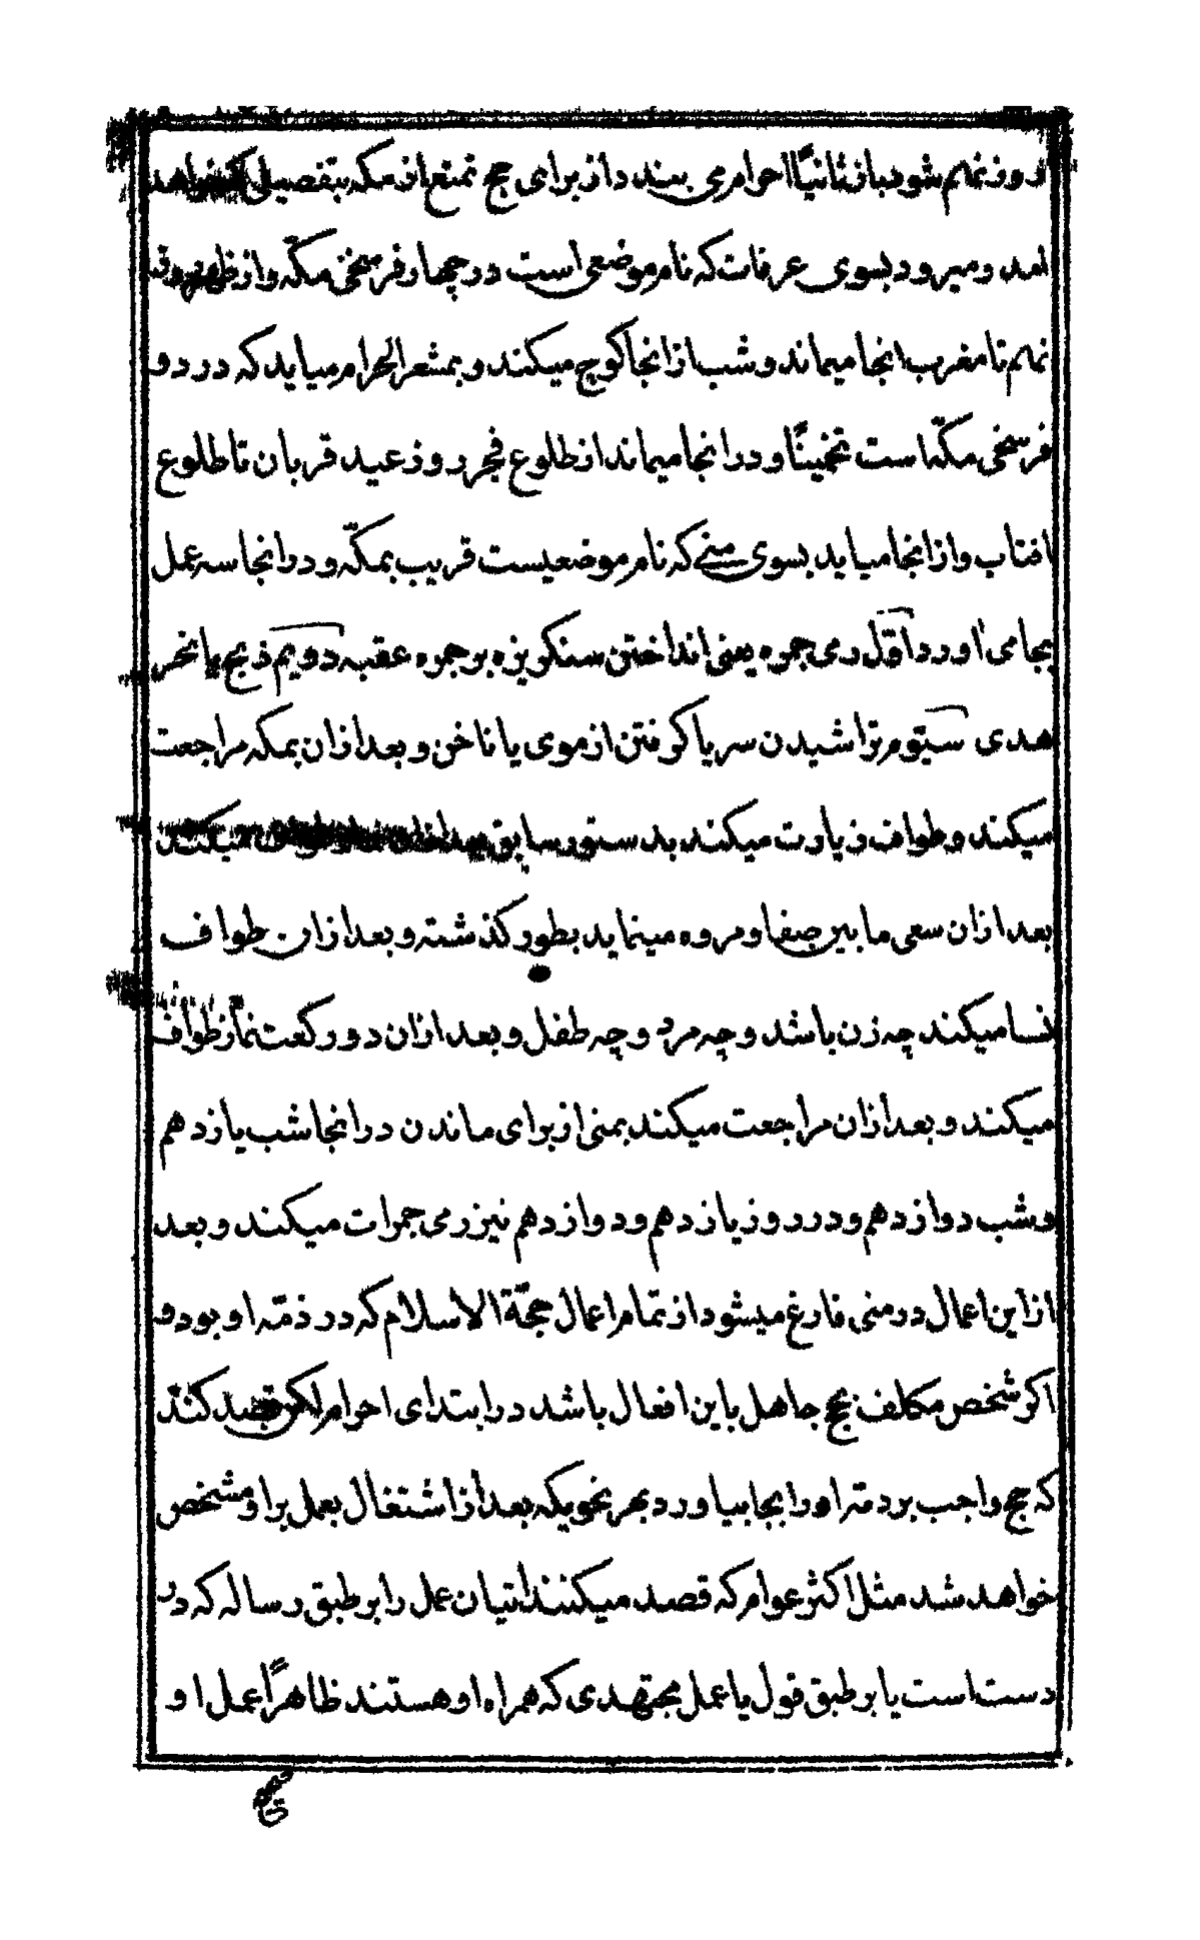 روز نهم شود باز ثانیًا احرام می بندد از برای حج تمتع از مکه بتفصیلی که خواهد
امد و میرود بسوی عرفات که نام موضعی است در چهار فرسخی مکّه و از ظهر روز
نهم تا مغرب انجا میماند و شب از انجا کوچ میکند و بمشعر الحرام میاید که در دو
فرسخی مکّه است تخمینًا و در انجا میماند از طلوع فجر روز عید قربان تا طلوع
افتاب و از انجا میاید بسوی منی که نام موضعیست قریب بمکّه و در انجا سه عمل
بجا می اورد اوّل رمی جمره یعنی انداختن سنکریزه بر جمره عقبه دویم ذبح یا نحر
هدی سیّوم تراشیدن سر یا کرفتن از موی یا ناخن و بعد ازان بمکه مراجعت
میکند و طواف زیارت میکند بدستور سابق میکند
بعد ازان سعی ما بین صفا و مروه مینماید بطور کذشته و بعد ازان طواف
نسا میکند چه زن باشد و چه مرد و چه طفل و بعد ازان دو رکعت نماز طواف
میکند و بعد ازان مراجعت میکند بمنی از برای ماندن در انجا شب یازدهم
و شب دوازدهم و در روز یازدهم و دوازدهم نیز رمی جمرات میکند و بعد
از این اعمال در منی فارغ میشود از تمام اعمال حجّة الاسلام که در ذمّه او بود و
اکر شخص مکلف بحج جاهل باین افعال باشد در ابتدای احرام اکر قصد کند
که حج واجب بر ذمّه او را بجا بیاورد بهر نحویکه بعد از اشتغال بعمل بر او مشخص
خواهد شد مثل اکثر عوام که قصد میکنند اتیان عمل را بر طبق رساله که در
دست است یا بر طبق قول یا عمل مجتهدی که همراه او هستند ظاهرًا عمل او
صحیح